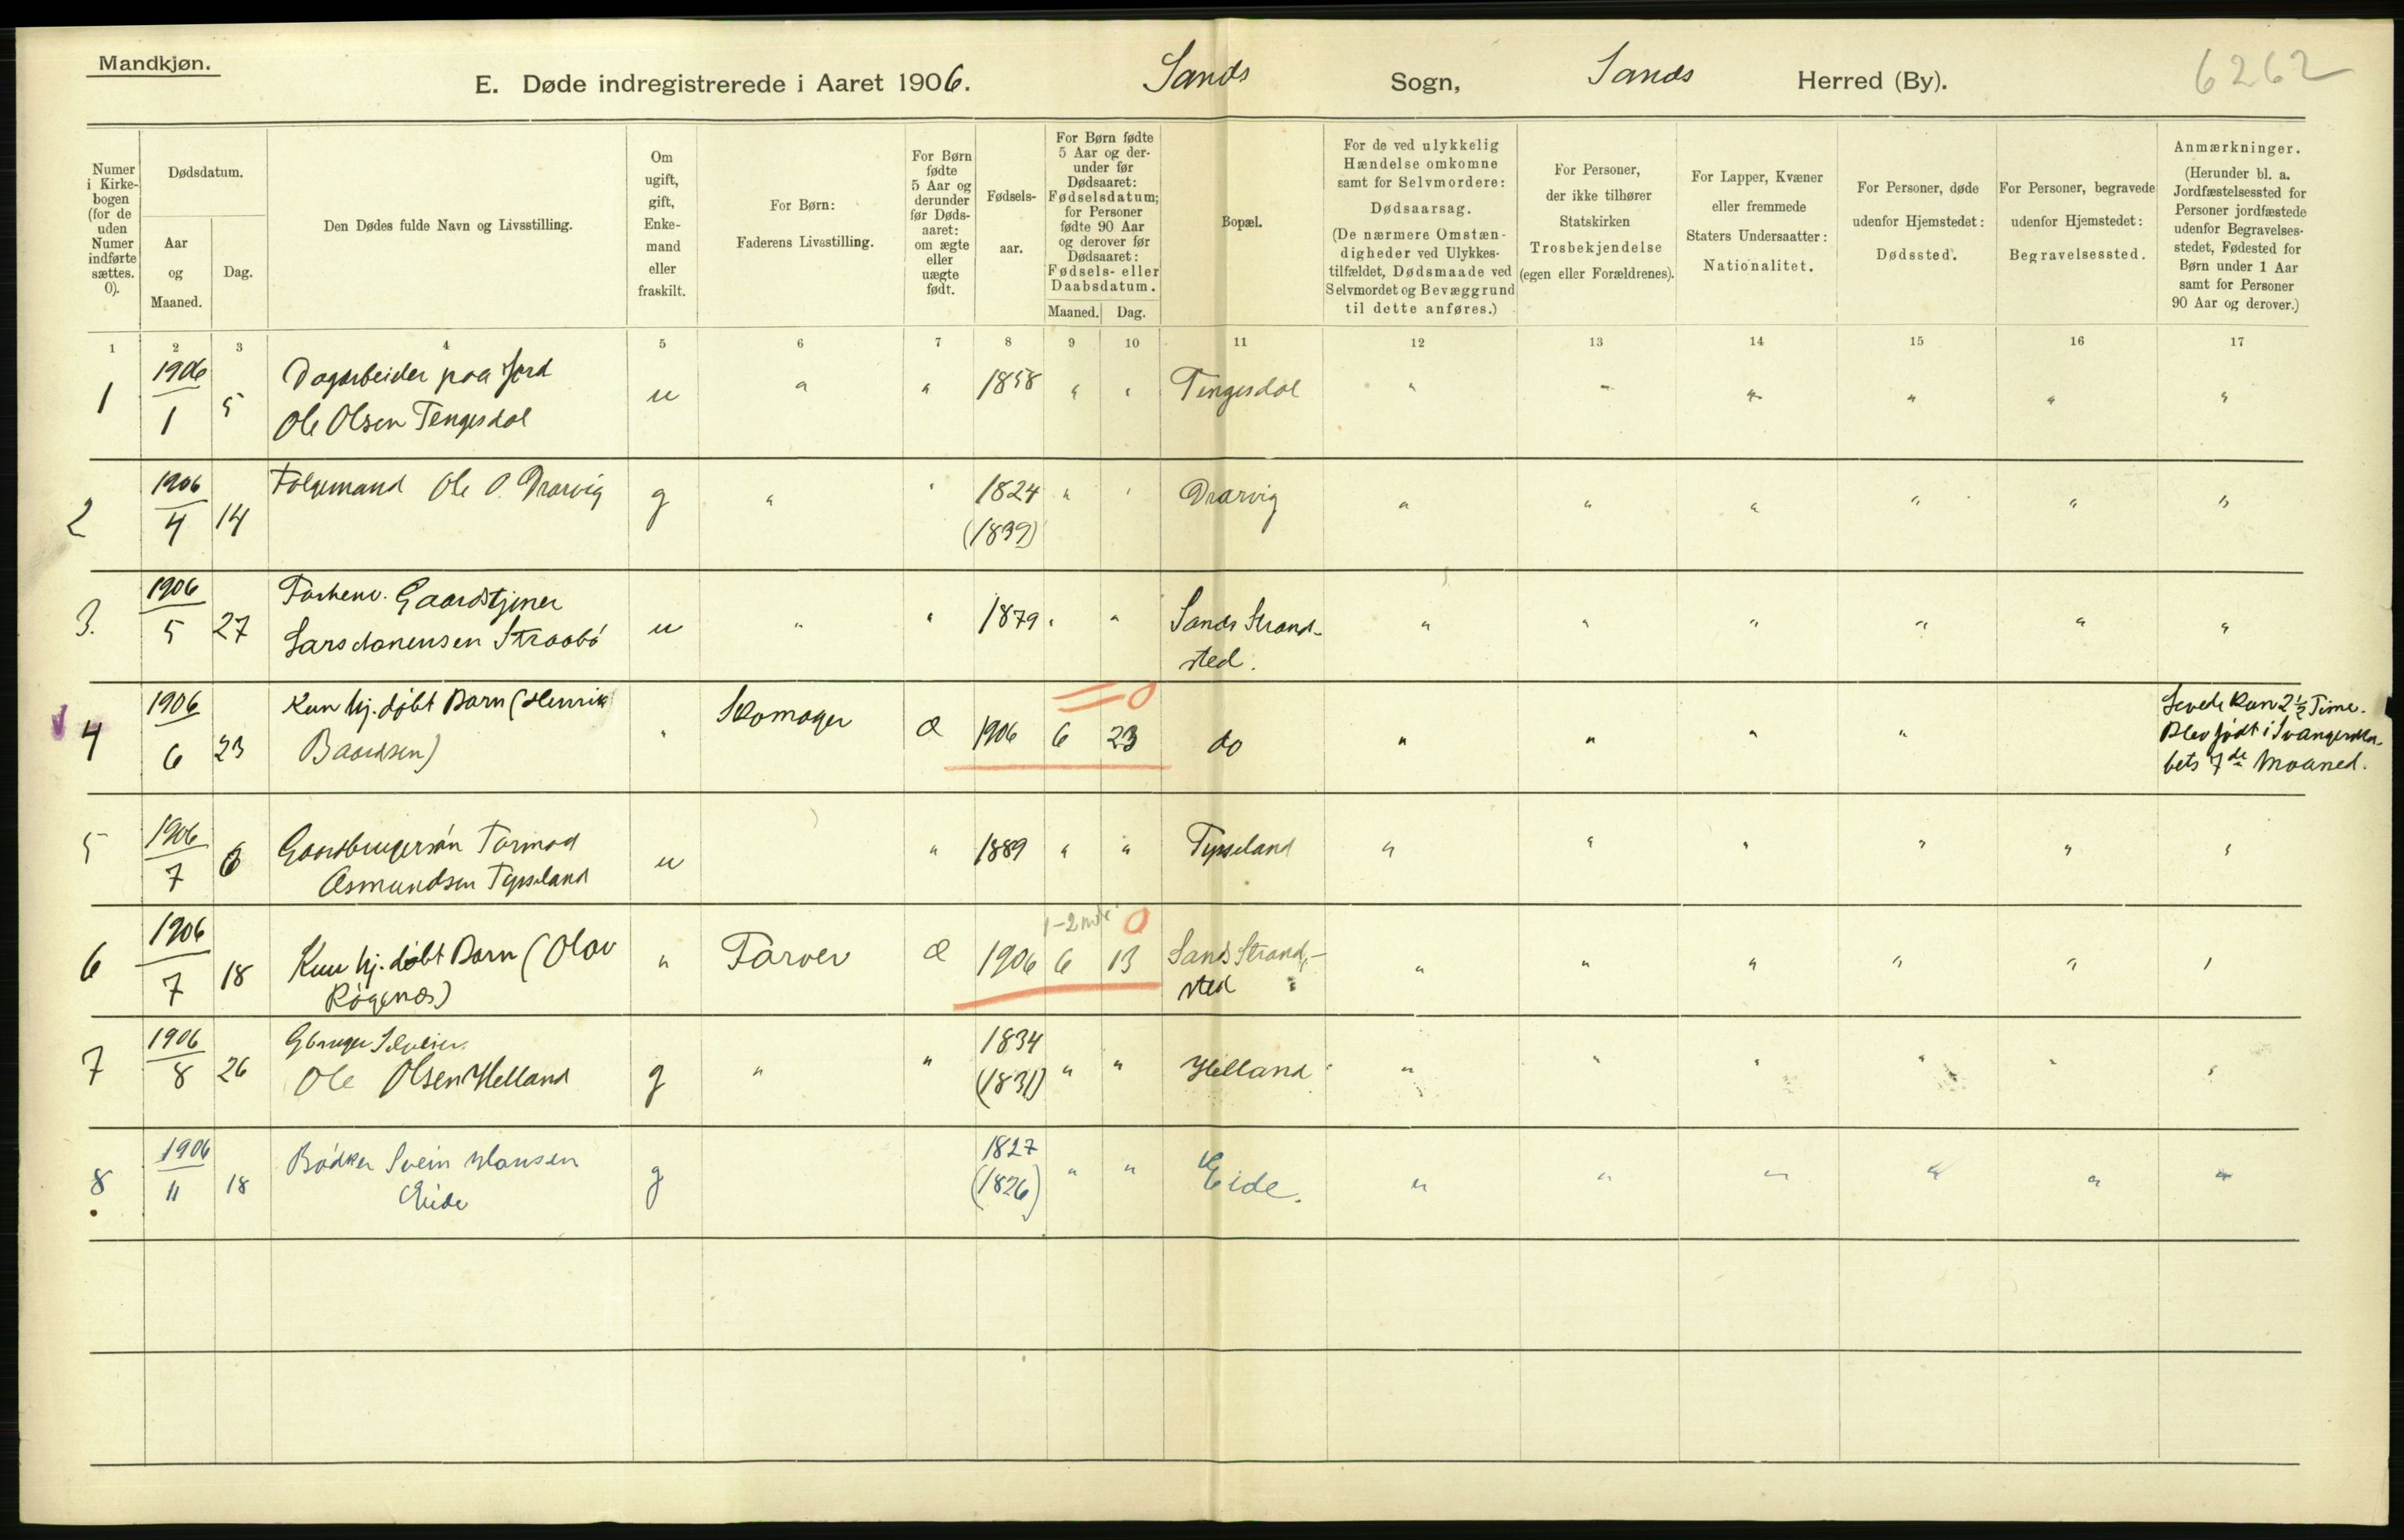 Mandkjøn.
E. Døde indregistrerede i Aaret 1906. Sands Sogn, Sands Herred (By). 6262
Numer i Kirkebogen (for de uden Numer indførte sættes. 0).
Dødsdatum.
Aar og Maaned.
Dag.
Den Dødes fulde Navn og Livsstilling.
Om ugift, gift, Enkemand eller fraskilt.
For Børn: Faderens Livsstilling.
For Børn fødte 5 Aar og derunder før Dødsaaret: om ægte eller uægte født.
Fødselsaar.
For Børn fødte 5 Aar og derunder før Dødsaaret: Fødselsdatum; for Personer fødte 90 Aar og derover før Dødsaaret: Fødsels- eller Daabsdatum.
Maaned. Dag.
Bopæl.
For de ved ulykkelig Hændelse omkomne samt for Selvmordere: Dødsaarsag. (De nærmere Omstændigheder ved Ulykkestilfældet, Dødsmaade ved Selvmordet og Bevæggrund til dette anføres.)
For Personer, der ikke tilhører Statskirken Trosbekjendelse (egen eller Forældrenes).
For Lapper, Kvæner eller fremmede Staters Undersaatter: Nationalitet.
For Personer, døde udenfor Hjemstedet: Dødssted.
For Personer, begravede udenfor Hjemstedet: Begravelsessted.
Anmærkninger. (Herunder bl. a. Jordfæstelsessted for Personer jordfæstede udenfor Begravelsesstedet, Fødested for Børn under 1 Aar samt for Personer 90 Aar og derover.)
1 2 3 4 5 6 7 8 9 10 11 12 13 14 15 16 17
1 1906/1 5 Dagarbeider paa Jord u " " 1858 " " Tengesdal " " " " " "
Ole Olsen Tengesdal
2 1906/4 14 Folgemand Ole O. Drarvig g " " 1824 " " Drarvig " " " " " "
(1839)
3. 1906/5 27 Forhenv. Gaardstjener u " " 1879 " " Sands Strand-
Lars Monensen Straabø sted.
4 1906/6 23 Kun hj. døbt Barn (Henrik " Skomager Æ 1906 6 23 do " " " " Levede kun 2 1/2 Time.
Baardsen) Blev født i Svangerska-
bets 7de Maaned.
5 1906/7 6 Gaardbrugersøn Tormod u " 1889 " " Tysseland " " " " " "
Asmundsen Tysseland
1-2 mdr. 0
6 1906/7 18 Kun hj. døbt Barn (Olav " Farver Æ 1906 6 13 Sands Strand- " " " " " "
Røgenæs) sted
7 1906/8 26 Gbruger Selveier
Ole Olsen Helland g " " 1834 " " Helland " " " " " "
(1831)
8 1906/11 18 Bødker Svein Hansen g 1827 " " Eide. " " " " " "
Eide (1826)